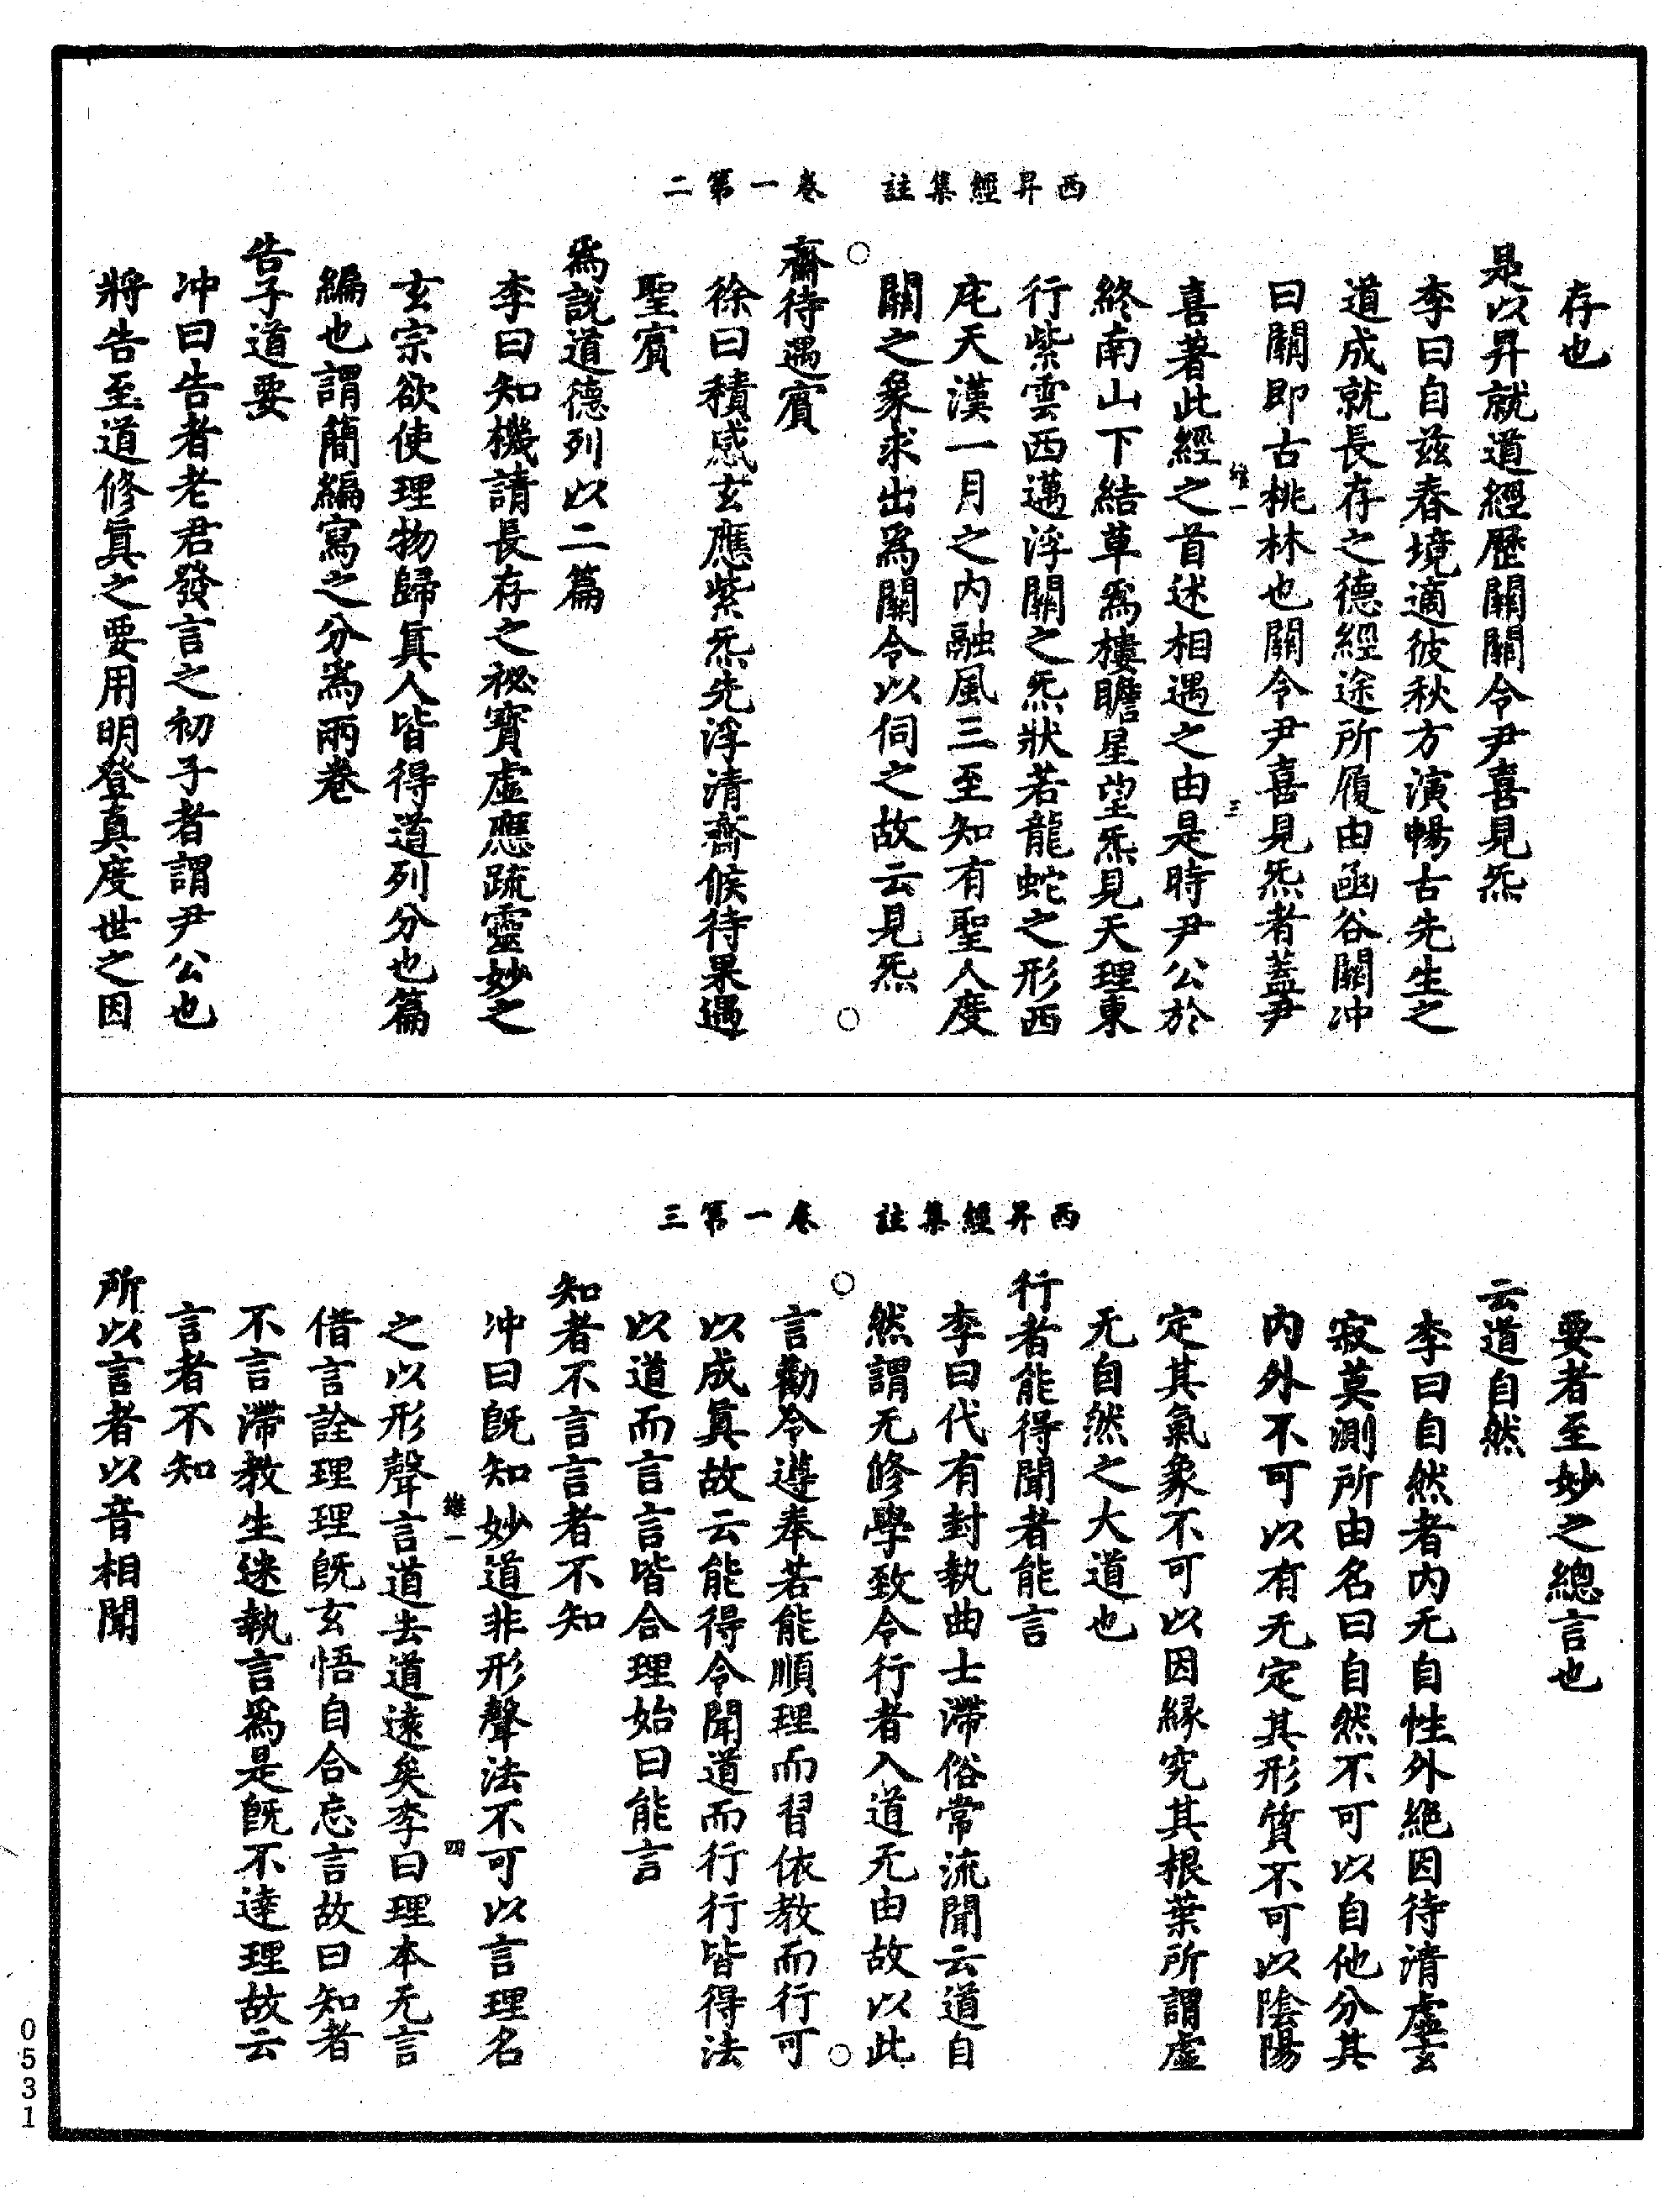 西昇經集註　卷一第二
存也
是以昇就道經歷關關令尹喜見炁
李曰自兹春境適彼秋方演暢古先生之
道成就長存之德經途所履由函谷關冲
曰關即古桃林也關令尹喜見炁者蓋尹
維一　三
喜著此經之首述相遇之由是時尹公於
終南山下結草爲樓瞻星望炁見天理東
行紫雲西邁浮關之炁狀若龍蛇之形西
庀天漢一月之内融風三至知有聖人度
關之象求出爲關令以伺之故云見炁
齋待遇賓
徐曰積感玄應紫炁先浮清齋候待果遇
聖賓
爲說道德列以二篇
李曰知機請長存之祕寳虛應疏靈妙之
玄宗欲使理物歸眞人皆得道列分也篇
編也謂簡編寫之分爲兩卷
告子道要
冲曰告者老君發言之初子者謂尹公也
將告至道修眞之要用明登真度世之因
西昇經集註　卷一第三
要者至妙之總言也
云道自然
李曰自然者内无自性外絶因待清虛玄
寂莫測所由名曰自然不可以自他分其
内外不可以有无定其形質不可以陰陽
定其氣象不可以因縁究其根葉所謂虛
无自然之大道也
行者能得聞者能言
李曰代有封執曲士滯俗常流聞云道自
然謂无修學致令行者入道无由故以此
言勸令遵奉若能順理而習依教而行可
以成眞故云能得令聞道而行行皆得法
以道而言言皆合理始曰能言
知者不言言者不知
冲曰旣知妙道非形聲法不可以言理名
維一　四
之以形聲言道去道遠矣李曰理本无言
借言詮理理旣玄悟自合忘言故曰知者
不言滯教生迷執言爲是旣不達理故云
言者不知
所以言者以音相聞
0531